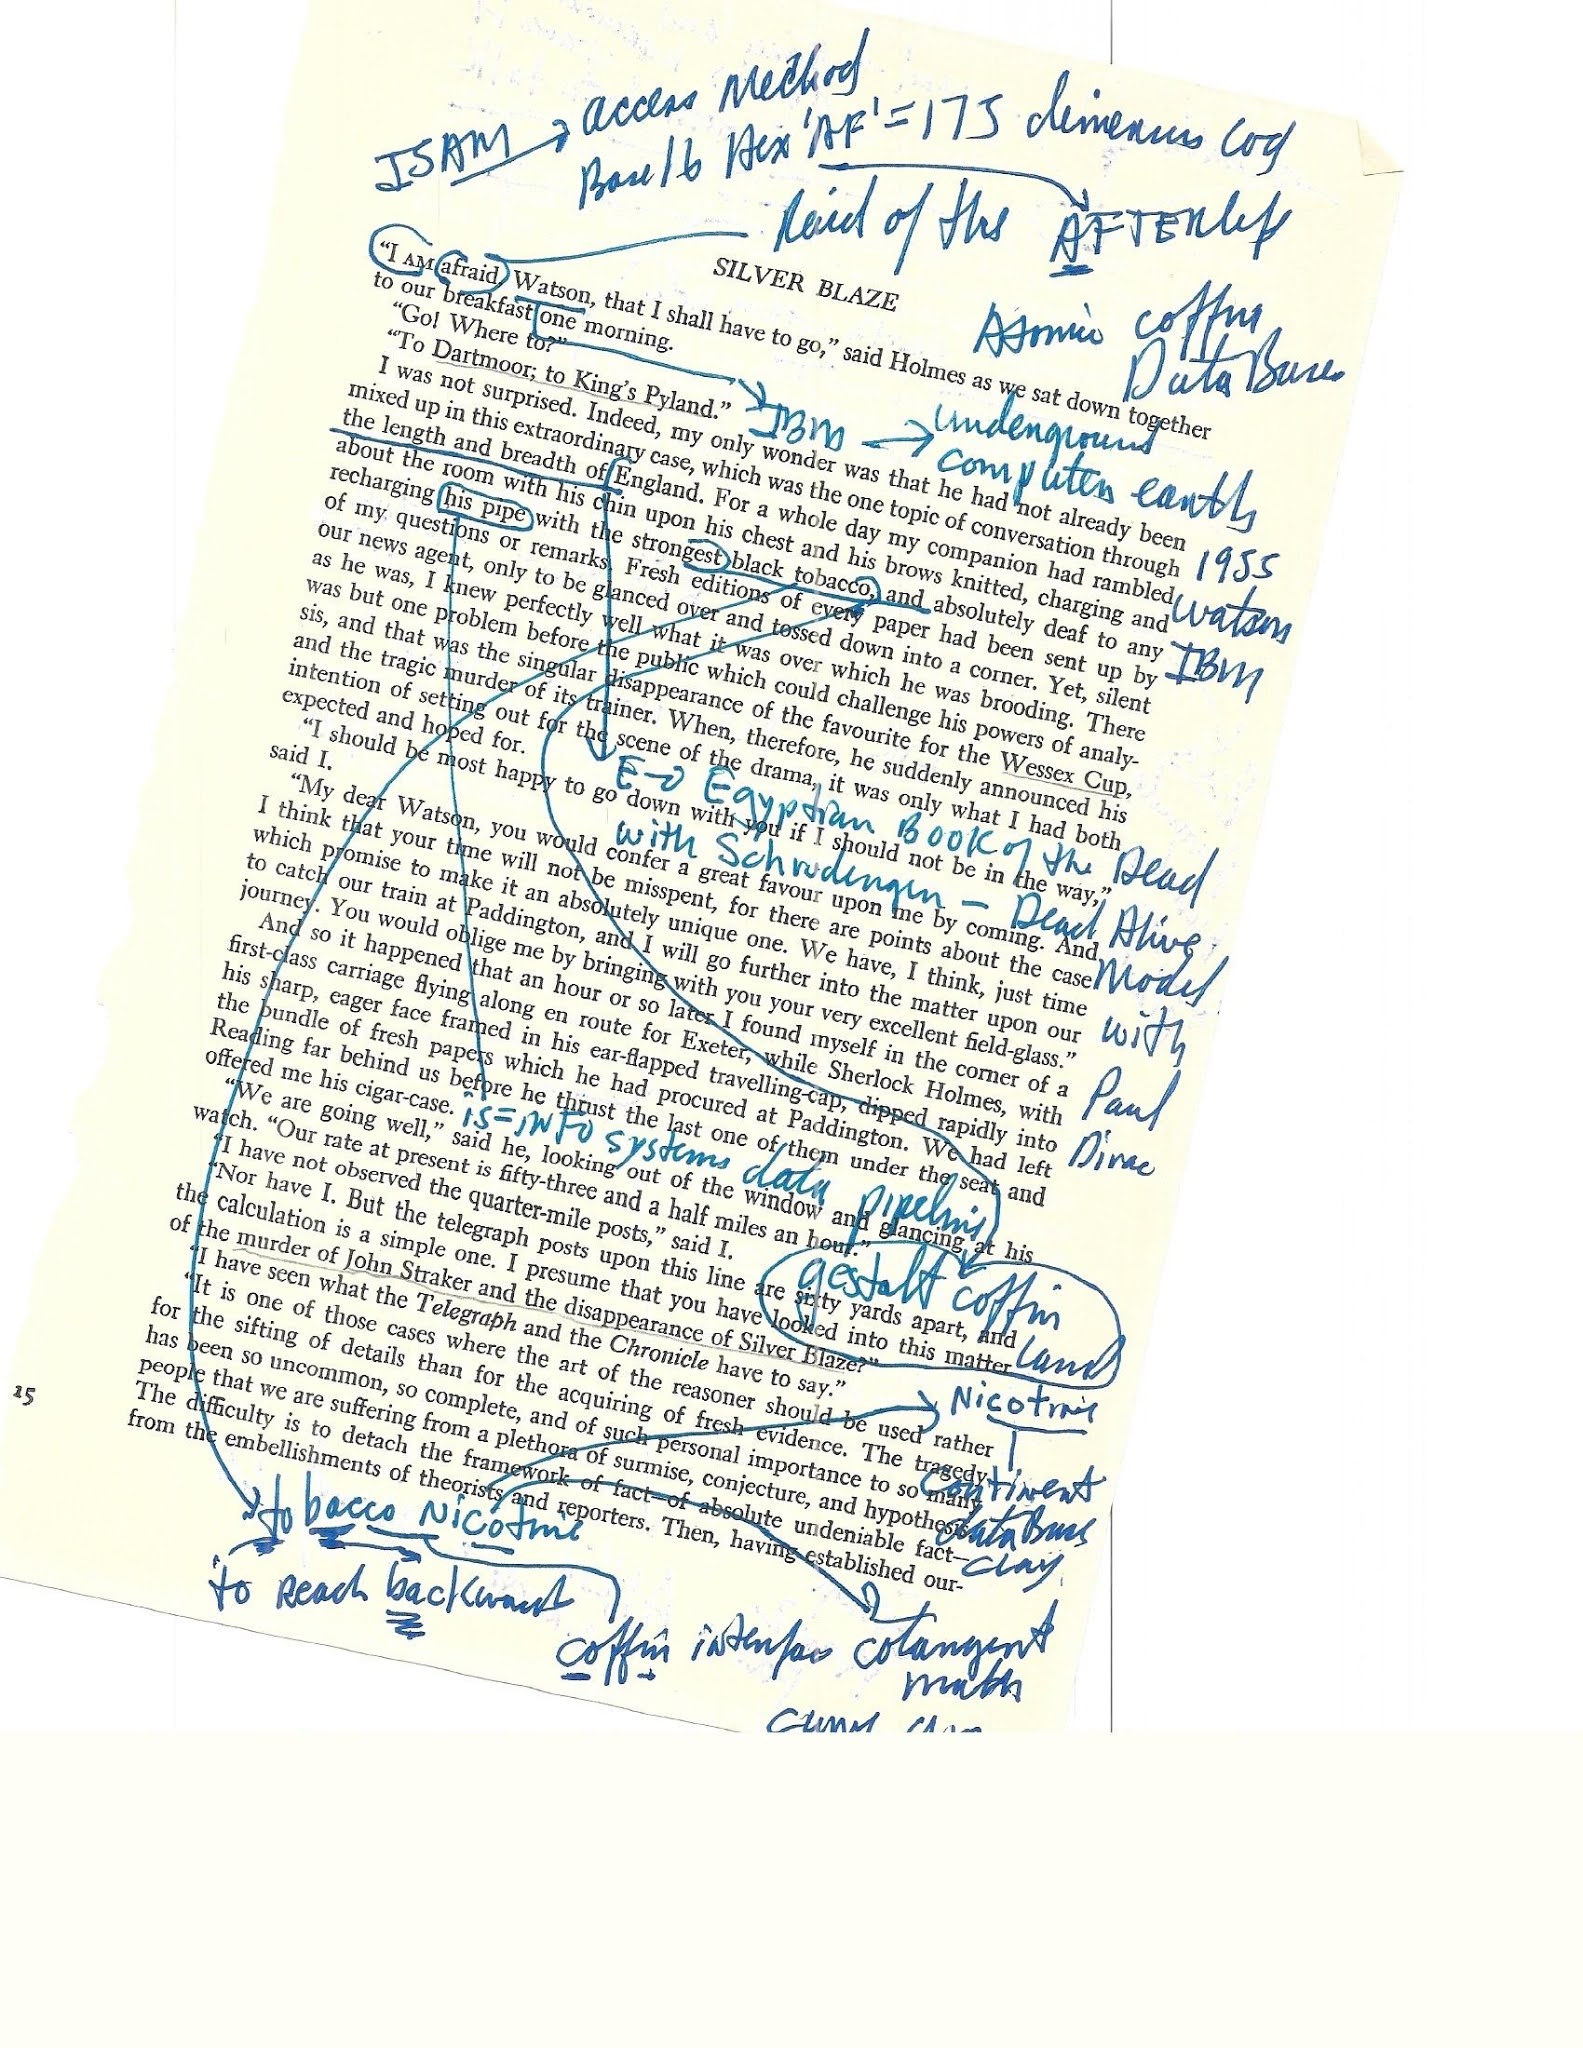 ISAM → access Method
Base 16 Hex 'AF' = 175
Raid of the AFTER
Atomic coffin
Data Base
SILVER BLAZE
“I AM afraid, Watson, that I shall have to go,” said Holmes as we sat down together
to our breakfast one morning.
“Go! Where to?”
“To Dartmoor; to King’s Pyland.”
IBM → underground
computers earth
1955
Watson
IBM
I was not surprised. Indeed, my only wonder was that he had not already been
mixed up in this extraordinary case, which was the one topic of conversation through
the length and breadth of England. For a whole day my companion had rambled
about the room with his chin upon his chest and his brows knitted, charging and
recharging his pipe with the strongest black tobacco, and absolutely deaf to any
of my questions or remarks. Fresh editions of every paper had been sent up by
our news agent, only to be glanced over and tossed down into a corner. Yet, silent
as he was, I knew perfectly well what it was over which he was brooding. There
was but one problem before the public which could challenge his powers of analy-
sis, and that was the singular disappearance of the favourite for the Wessex Cup,
and the tragic murder of its trainer. When, therefore, he suddenly announced his
intention of setting out for the scene of the drama, it was only what I had both
expected and hoped for.
“I should be most happy to go down with you if I should not be in the way,”
said I.
E → Egyptian Book of the Dead
with Schrodenger - Dead Alive
Model
with
Paul
Dirac
“My dear Watson, you would confer a great favour upon me by coming. And
I think that your time will not be misspent, for there are points about the case
which promise to make it an absolutely unique one. We have, I think, just time
to catch our train at Paddington, and I will go further into the matter upon our
journey. You would oblige me by bringing with you your very excellent field-glass.”
And so it happened that an hour or so later I found myself in the corner of a
first-class carriage flying along en route for Exeter, while Sherlock Holmes, with
his sharp, eager face framed in his ear-flapped travelling-cap, dipped rapidly into
the bundle of fresh papers which he had procured at Paddington. We had left
Reading far behind us before he thrust the last one of them under the seat and
offered me his cigar-case.
is = info systems data pipeline
“We are going well,” said he, looking out of the window and glancing at his
watch. “Our rate at present is fifty-three and a half miles an hour.”
“I have not observed the quarter-mile posts,” said I.
“Nor have I. But the telegraph posts upon this line are sixty yards apart, and
the calculation is a simple one. I presume that you have looked into this matter
of the murder of John Straker and the disappearance of Silver Blaze?”
gestalt coffin
land
“I have seen what the Telegraph and the Chronicle have to say.”
“It is one of those cases where the art of the reasoner should be used rather
for the sifting of details than for the acquiring of fresh evidence. The tragedy
has been so uncommon, so complete, and of such personal importance to so many
people that we are suffering from a plethora of surmise, conjecture, and hypothesis.
The difficulty is to detach the framework of fact—of absolute undeniable fact—
from the embellishments of theorists and reporters. Then, having established our-
15
Nicotine
Continent
data Base
clay
tobacco Nicotine
to reach backward
coffin interface cotangent
math